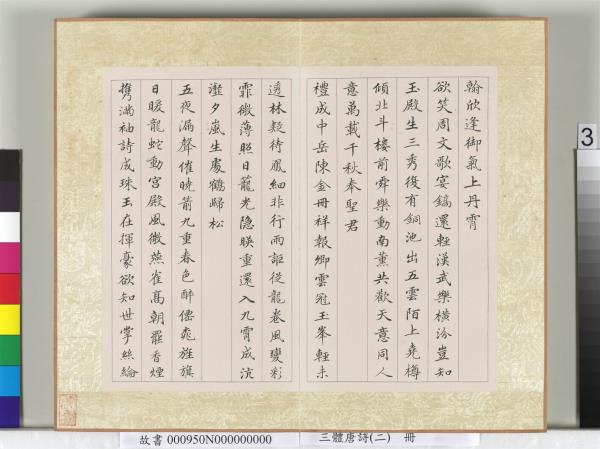 翰欣逢御氣上丹霄
欲笑周文歌宴鎬還輕漢武樂橫汾豈知
玉殿生三秀後有銅池出五雲陌上堯樽
傾北斗樓前舜樂動南薰共歡天意同人
意萬載千秋奉聖君
禮成中岳陳金冊祥報卿雲冠玉峯輕未
透林疑待鳳細非行雨詎從龍卷風變彩
霏微薄照日籠光隐暎重還入九霄成沆
瀣夕嵐生處鶴歸松
五夜漏聲催曉箭九重春色醉僊桃旌旗
日暖龍蛇動宮殿風微燕雀高朝罷香煙
携滿袖詩成珠玉在揮豪欲知世掌絲綸
故書 000950N000000000
三體唐詩(二) 冊
3